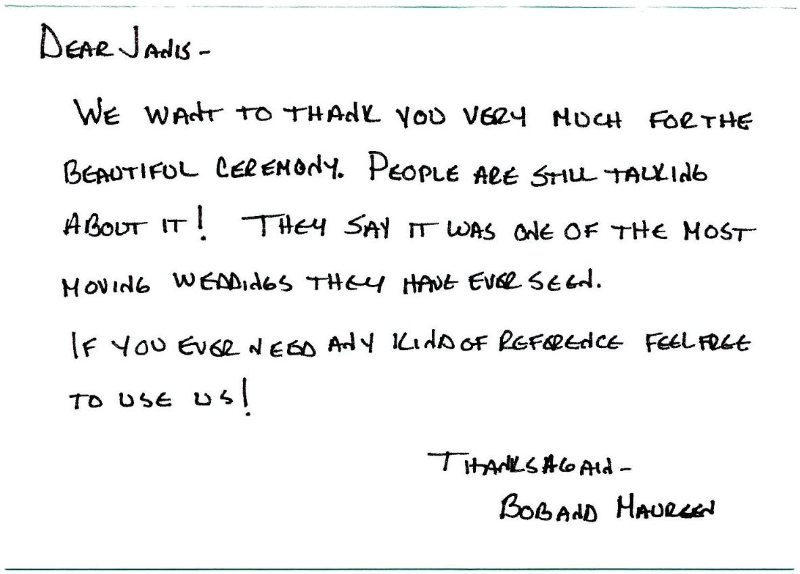 DEAR JANIS -
WE WANT TO THANK YOU VERY MUCH FOR THE
BEAUTIFUL CEREMONY. PEOPLE ARE STILL TALKING
ABOUT IT! THEY SAY IT WAS ONE OF THE MOST
MOVING WEDDINGS THEY HAVE EVER SEEN.
IF YOU EVER NEED ANY KIND OF REFERENCE FEEL FREE
TO USE US!
THANKS AGAIN -
BOB AND MAUREEN